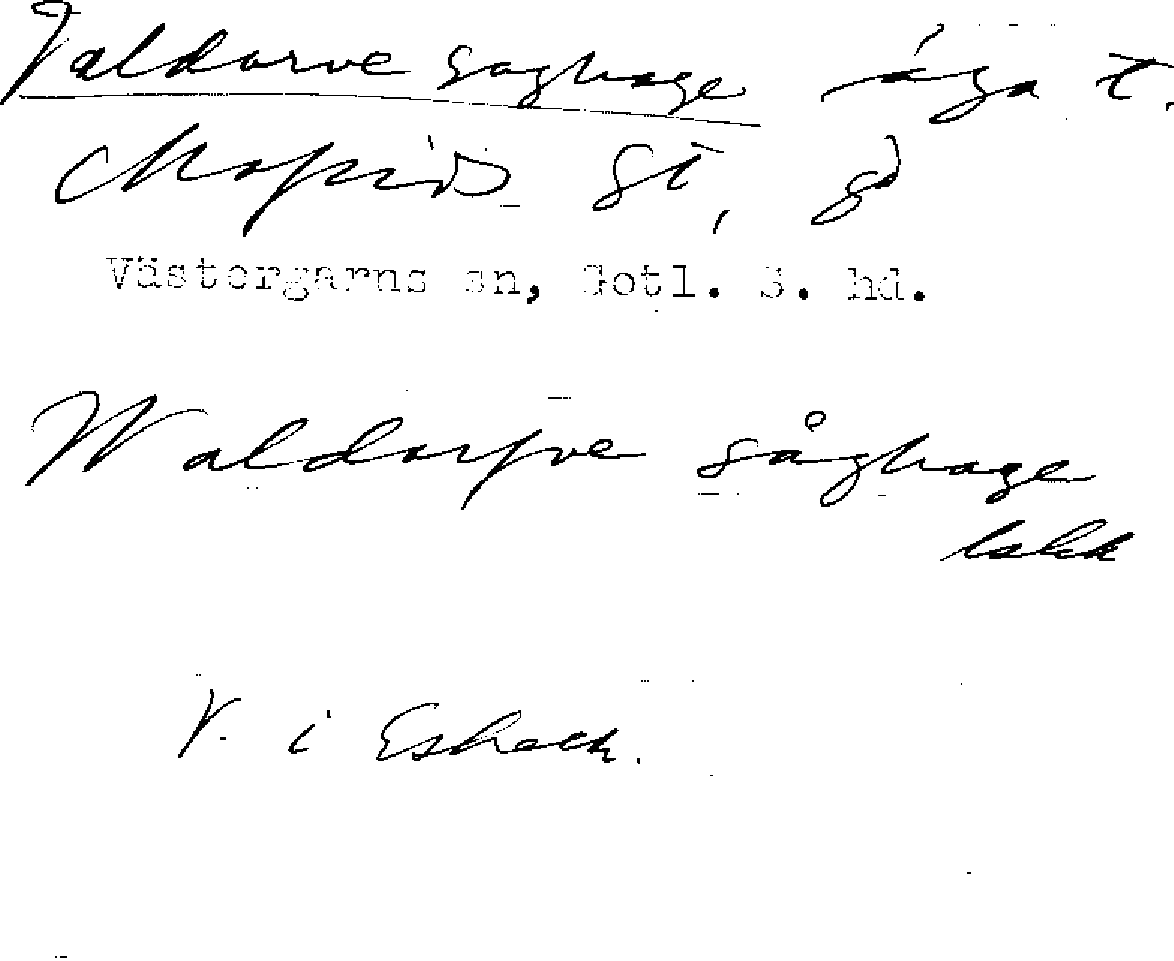 Valdarve saghage äga t.
Mafrids St, gd
Västergarns sn, Gotl. S. hd.
Waldarfve såghage
lskk
V. i Eskeck.